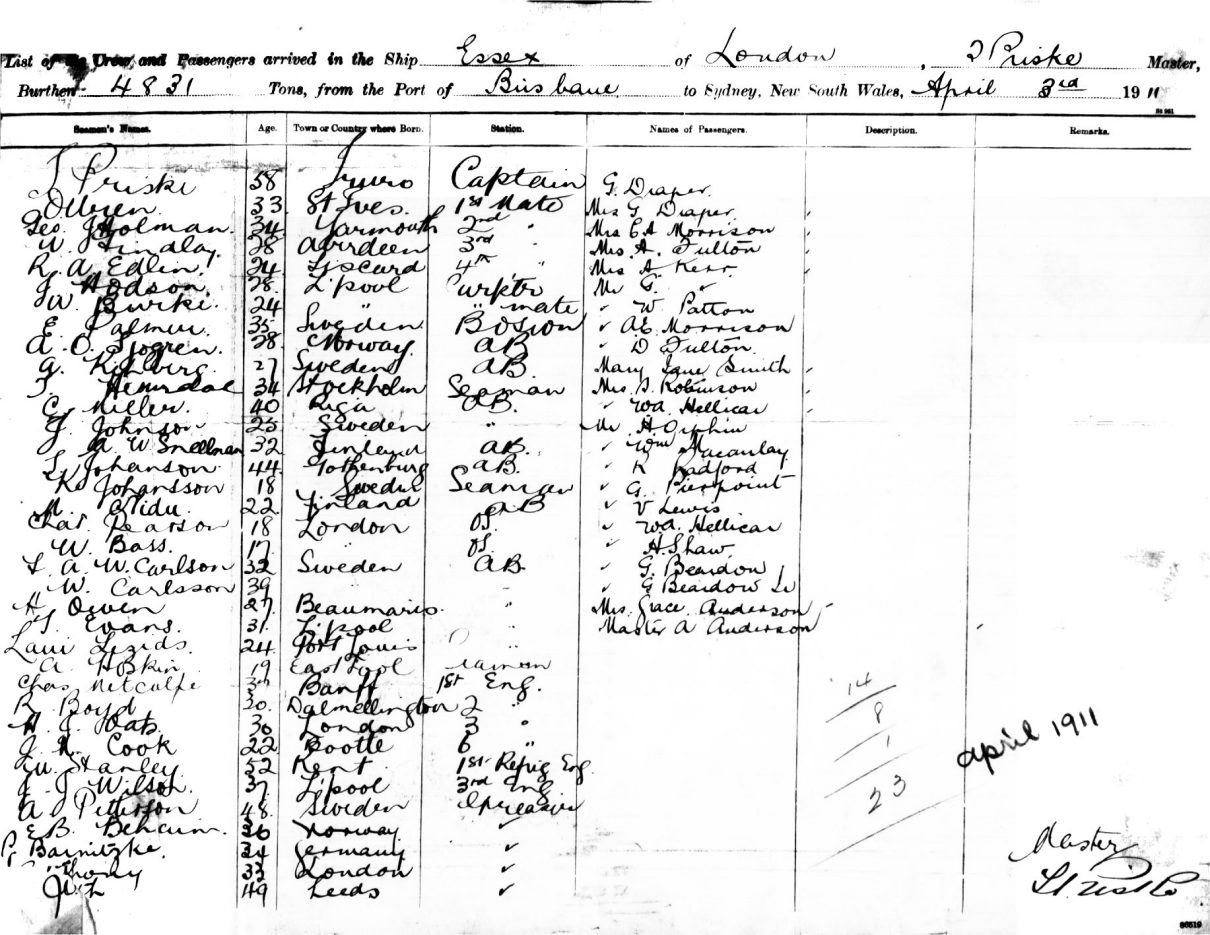 List of the Crew and Passengers arrived in the Ship Essex of London, J Priske Master,
Burthen 4831 Tons, from the Port of Brisbane to Sydney, New South Wales, April 3rd 1911
Seamen's Names. Age. Town or Country where Born. Station. Names of Passengers. Description. Remarks.
J Priske 58 Truro Captain G. Draper.
33 St Ives. 1st Mate Mrs G Draper.
Geo. J Holman. 34 Yarmouth 2nd " Mrs E A Morrison
W. Findlay. 28 Aberdeen 3rd Mrs A. Fulton
R. A Edlin. 24 Liscard 4th " Mrs A. Kerr.
J Hodson. 28. L'pool Mr G. "
W Burke. 24 " " mate " W Patton
E Palmer. 35 Sweden Bosson " A E Morrison
A. O. Sjogren. 28. Norway. AB " D Fulton.
G. 27 Sweden AB. Mary Jane Smith
34 Stockholm Seaman Mrs. S. Robinson
E Miller. 40 Riga AB. " Wd. Hellicar
J. Johnson 25 Sweden " Mr H Orphin
A W Snellman 32 Finland AB. " Wm Macaulay
Johanson 44 Gothenburg AB. " K Radford
K. Johansson 18 Seaman " G. Pierpoint
M. 22 Finland AB " V Lewis
Chas. Pearson 18 London OS. " Wd. Hellicar
W. Bass. 17 " OS. " H. Shaw.
A. W. Carlson 32 Sweden AB. " G. Beardow
W. Carlsson 39 " " " G Beardow Sr
H Owen 27 Beaumaris. " Mrs. Grace Anderson
J. Evans. 31. L'pool " Master A Anderson
24. Port Louis "
A. Hoskin 19 East Pool Seaman
Chas Metcalfe 37 Banff 1st Eng.
R Boyd 30. Dalmellington 2 "
H. J. Oats 30 London 3 "
J. K. Cook 22 Bootle 6 "
W. Stanley. 52 Kent 1st Refrig Eng.
J Wilson. 37 L'pool 3rd Eng
A Petterson 48. Sweden
E. B. 36 Norway "
Barnitzke. 34 Germany "
33 London "
49 Leeds "
14
8
1
23
April 1911
Master
J Priske